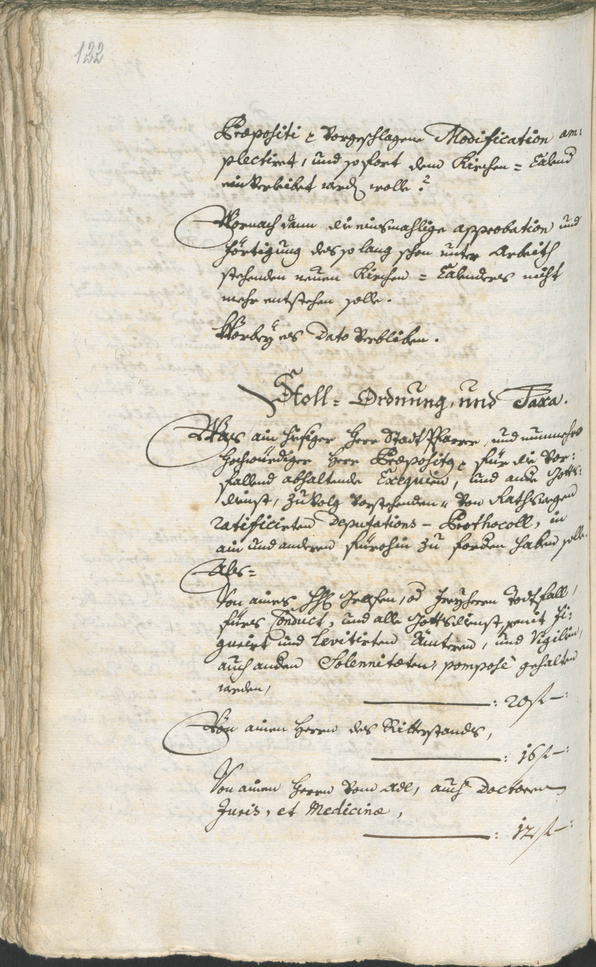 122
Præpositi &c Vorgeschlagene Modification am:
plectiret, und sofort dem Kirchen = Calend
einverleibet werden wolle?
Wornach dann die einsmahlige approbation und
förtigung des so lang schon unter Arbeith
stehenden neuen Kirchen = Calenders nicht
mehr entstehen solle.
Worbey es Dato Verbliben.
Stoll = Ordnung, und Taxa.
Was ain hiesiger Herr Stadt Pfarrer, und nunmehro
Hochwürdiger Herr Præpositus &c für die Vor:
fallend abhaltende Exequien, und ande Gotts:
dienst, zu Volg Vorstehenden Von Rathswegen
ratificirten Deputations - Prothocoll, in
ain und anderen fürohin zu fordern haben solle.
Als =
Von aines Grafen, od Freyherrn Todtfall,
fürs Conduct, und alle Gottsdienst mit Fi:
gurirt und Levitirten Ämteren, und Vigilien,
auch anderen Solennitæten, pompose gehalten
werden,
: 20 f —:
Von ainen Herrn des Ritterstands,
: 16 f —:
Von ainen Herrn Vom Adl, auch Doctoren
Juris, et Medicinæ,
: 12 f —: